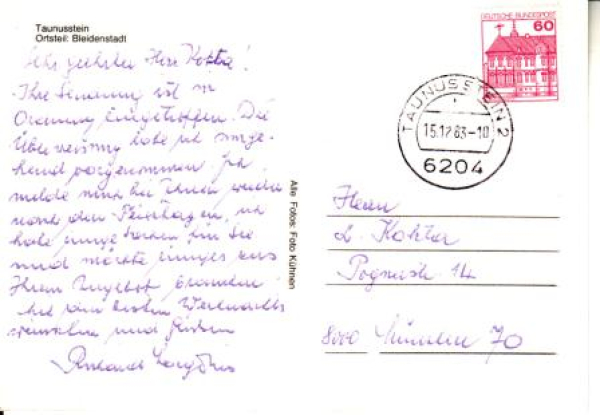 Taunusstein
Ortsteil: Bleidenstadt
Sehr geehrter Herr Kohta!
Ihre Sendung ist in
Ordnung eingetroffen. Die
Überweisung habe ich umge-
hend vorgenommen. Ich
melde mich bei Ihnen wieder
nach den Feiertagen, ich
habe einige Sachen für Sie
und möchte einiges aus
Ihrem Angebot
Mit den besten Weihnachts
wünschen und Grüßen
Alle Fotos: Foto Kühnen
DEUTSCHE BUNDESPOST
60
TAUNUSSTEIN 2
15.12.83-10
6204
Herrn
L. Kohta
14
8000 München 70